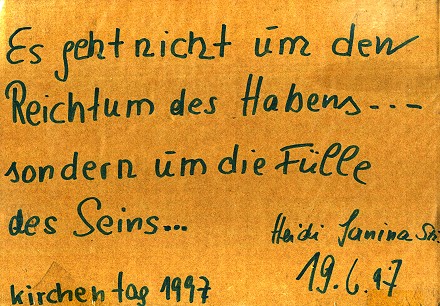 Es geht nicht um den
Reichtum des Habens...-
sondern um die Fülle
des Seins...
Heidi Janina
Kirchentag 1997
19.6.97